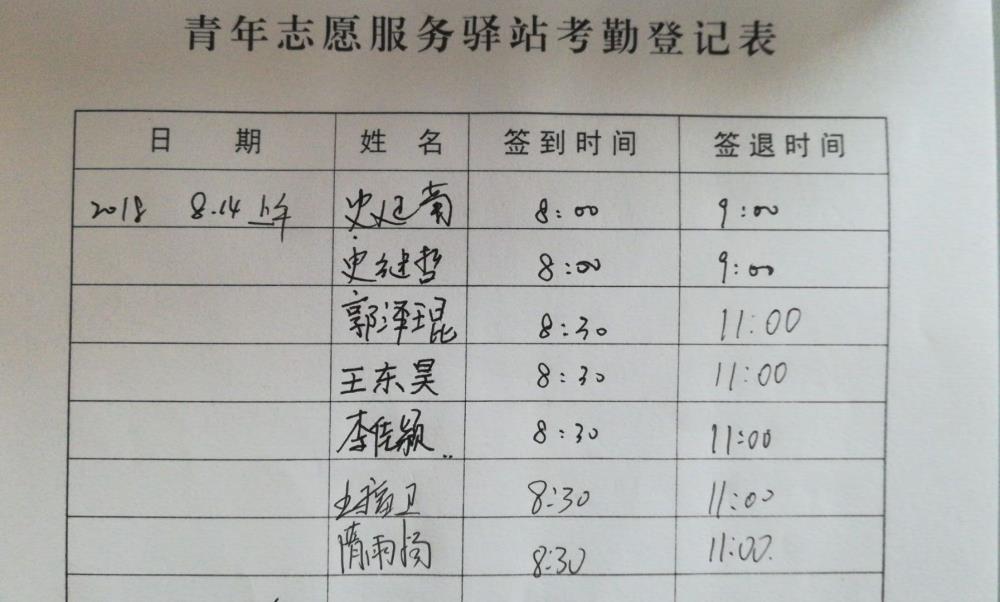 青年志愿服务驿站考勤登记表
日 期 姓 名 签到时间 签退时间
2018 8.14 上午 史廷菊 8:00 9:00
史继哲 8:00 9:00
郭泽琨 8:30 11:00
王东昊 8:30 11:00
李佳颖 8:30 11:00
8:30 11:00
隋雨 8:30 11:00